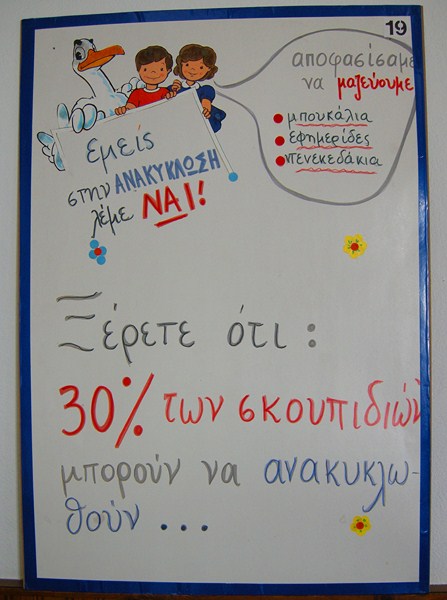 19
αποφασίσαμε
να μαζεύουμε
μπουκάλια
εφημερίδες
ντενεκεδάκια
Εμείς
στην ΑΝΑΚΥΚΛΩΣΗ
λέμε ΝΑΙ!
Ξέρετε ότι :
30% των σκουπιδιών
μπορούν να ανακυκλω-
θούν ...